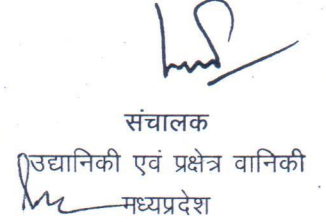 संचालक
उद्यानिकी एवं प्रक्षेत्र वानिकी
मध्यप्रदेश